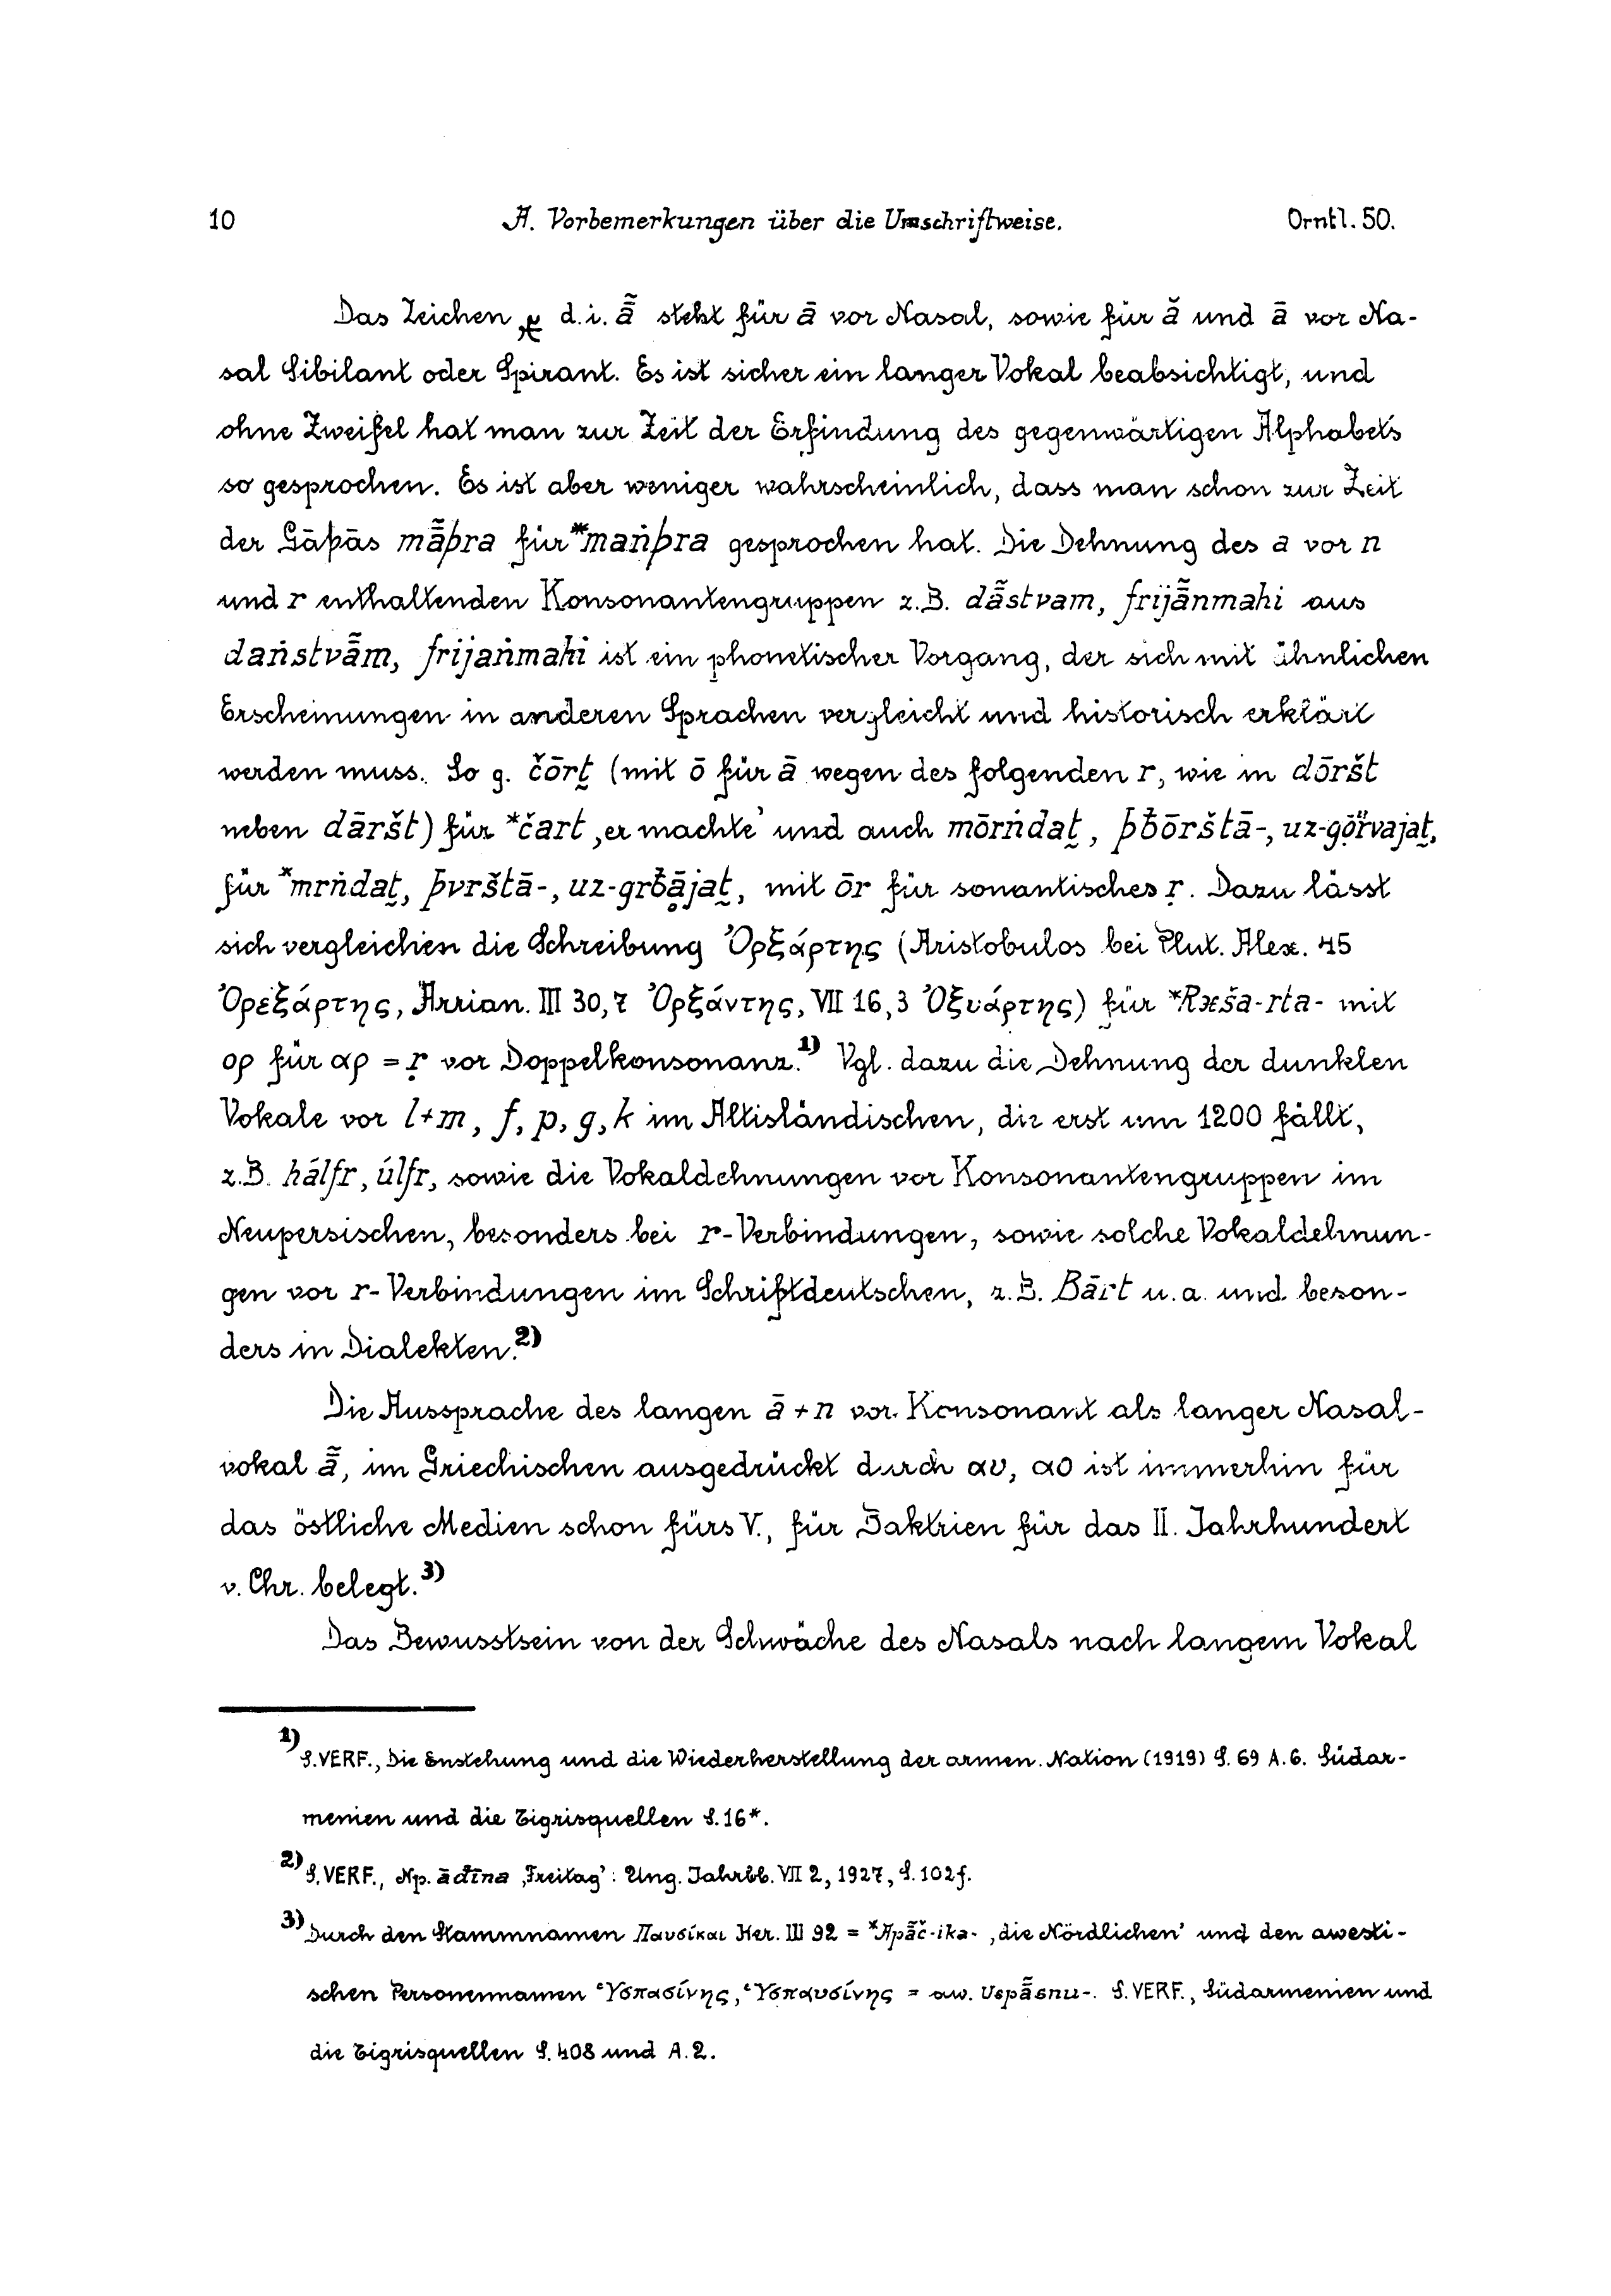 10 A. Vorbemerkungen über die Umschriftweise. Orntl. 50.
Das Zeichen d.i. ā̃ steht für ā vor Nasal, sowie für ă und ā vor Na-
sal Sibilant oder Spirant. Es ist sicher ein langer Vokal beabsichtigt, und
ohne Zweifel hat man zur Zeit der Erfindung des gegenwärtigen Alphabets
so gesprochen. Es ist aber weniger wahrscheinlich, dass man schon zur Zeit
der Gāþās mā̃þra für *maṅþra gesprochen hat. Die Dehnung des a vor n
und r enthaltenden Konsonantengruppen z.B. dā̃stvam, frijā̃nmahi aus
daṅstvā̃m, frijaṅmahi ist ein phonetischer Vorgang, der sich mit ähnlichen
Erscheinungen in anderen Sprachen vergleicht und historisch erklärt
werden muss. So g. čōrt̰ (mit ō für ā wegen des folgenden r, wie in dōršt
neben dāršt) für *čart ‚er machte' und auch mōrṅdat̰, þƀōrštā-,
für *mrṅdat̰, þvrštā-, mit ōr für sonantisches ṛ. Dazu lässt
sich vergleichen die Schreibung Ὀρξάρτης (Aristobulos bei Plut. Alex. 45
Ὀρεξάρτης, Arrian. III 30,7 Ὀρξάντης, VII 16,3 Ὀξυάρτης) für mit
ορ für αρ = ṛ vor Doppelkonsonanz.1) Vgl. dazu die Dehnung der dunklen
Vokale vor l+m, f, p, g, k im Altisländischen, die erst um 1200 fällt,
z.B. hálfr, úlfr, sowie die Vokaldehnungen vor Konsonantengruppen im
Neupersischen, besonders bei r-Verbindungen, sowie solche Vokaldehnun-
gen vor r-Verbindungen im Schriftdeutschen, z.B. Bārt u.a. und beson-
ders in Dialekten.2)
Die Aussprache des langen ā+n vor Konsonant als langer Nasal-
vokal ā̃, im Griechischen ausgedrückt durch αυ, αο ist immerhin für
das östliche Medien schon fürs V., für Baktrien für das II. Jahrhundert
v. Chr. belegt.3)
Das Bewusstsein von der Schwäche des Nasals nach langem Vokal
1) S. VERF., Die Enstehung und die Wiederherstellung der armen. Nation (1919) S. 69 A. 6. Südar-
menien und die Tigrisquellen S. 16*.
2) S. VERF., Np. āđīna ‚Freitag': Ung. Jahrbb. VII 2, 1927, S. 102f.
3) Durch den Stammnamen Παυσίκαι Her. III 92 = *Apā̃č-ika- ‚die Nördlichen' und den awesti-
schen Personennamen Ὑσπασίνης, Ὑσπαυσίνης = aw. Uspā̃snu-. S. VERF., Südarmenien und
die Tigrisquellen S. 408 und A. 2.